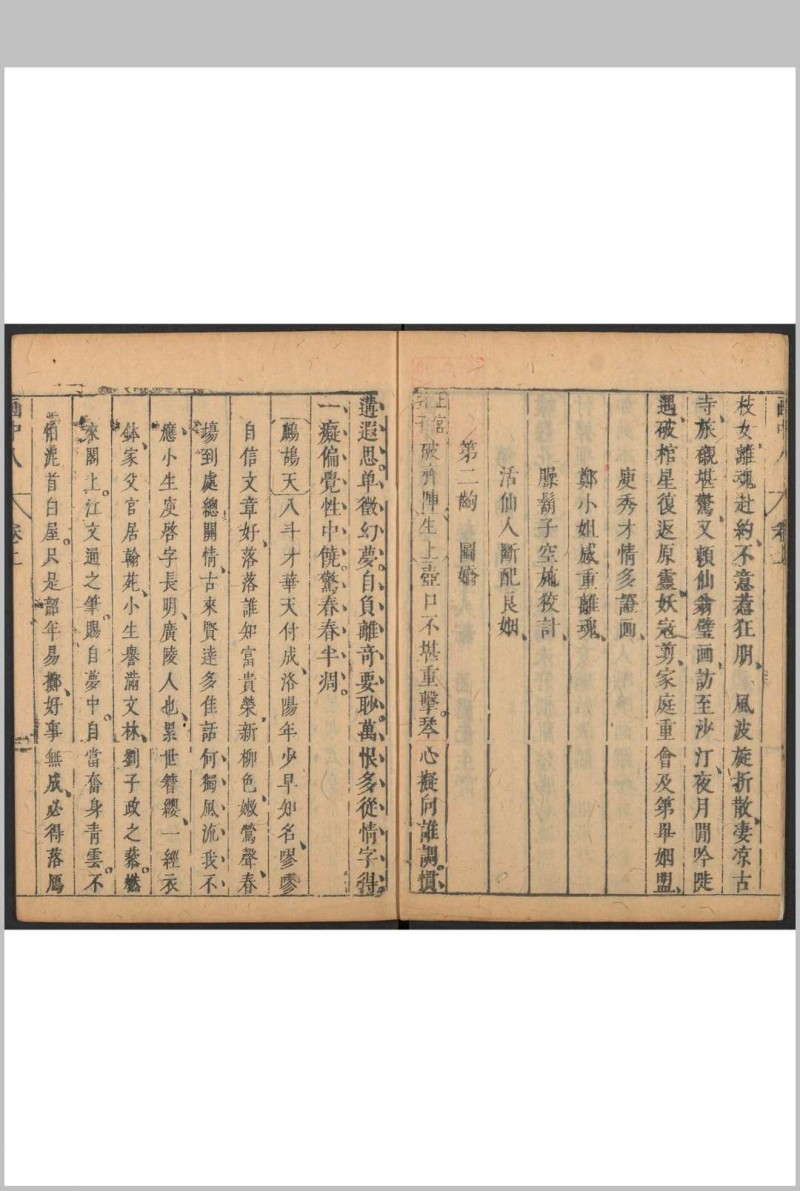 畵中人 卷上
枝女離魂赴約、不意惹狂朋、風波旋折散、凄凉古
寺、旅櫬堪驚、又賴仙翁璧画、訪至沙汀、夜月閒吟陡
遇、破棺星復返原靈、妖寇剪、家庭重會及第畢姻盟、
庾秀才情多證画、
鄭小姐感重離魂、
臊鬍子空施狡計、
活仙人斷配良姻、
第二齣 圖嬌
正宮引子 破齊陣 生上 壺口不堪重擊、琴心擬向誰調、慣
遘遐思、单徵幻夢、自負離奇要眇、萬恨多從情字得、
一癡偏覺性中饒、驚春春半凋。
鷓鴣天 八斗才華天付成、洛陽年少早知名、嘐嘐
自信文章好、落落誰知富貴榮、新柳色、嫩鶯聲、春
塲到處總關情、古來賢達多佳話、何獨風流我不
應、小生庾啓字長明、廣陵人也、累世簪纓、一經衣
鉢、家父官居翰苑、小生譽滿文林、劉子政之藜、燃
來閣上、江文通之筆、賜自夢中、自當奮身青雲、不
首白屋、只是韶年易擲、好事無成、必得落鴈
畵中人 卷上